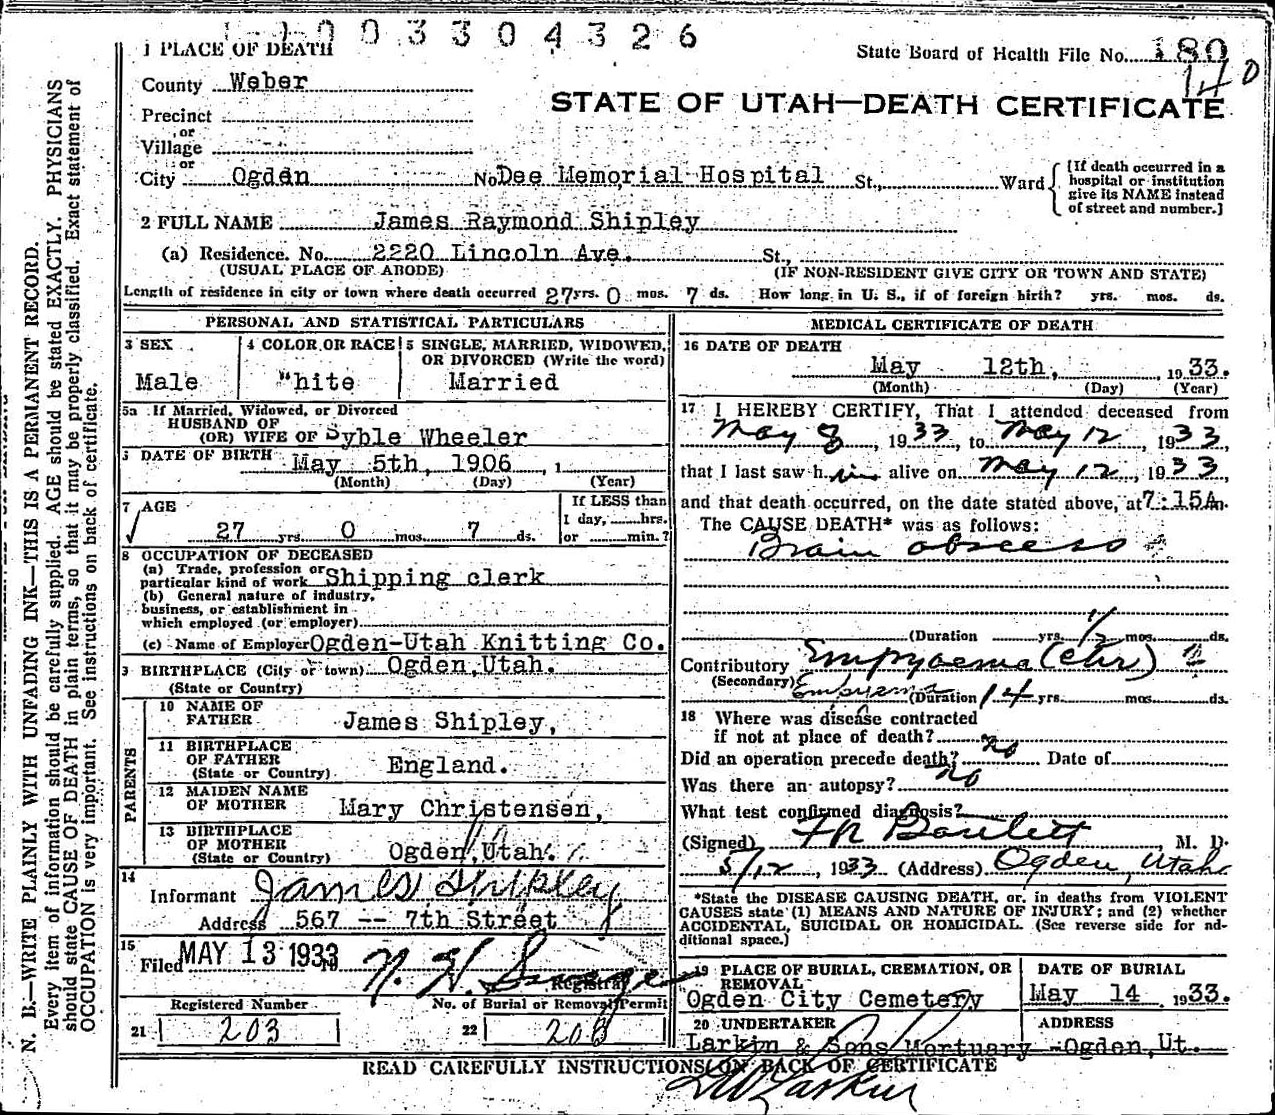 1003304326
1 PLACE OF DEATH
State Board of Health File No. 180
140
County Weber
STATE OF UTAH—DEATH CERTIFICATE
Precinct
or
Village
or
City Ogden No Dee Memorial Hospital St., Ward
[If death occurred in a hospital or institution give its NAME instead of street and number.]
2 FULL NAME James Raymond Shipley
(a) Residence. No. 2220 Lincoln Ave. St.,
(USUAL PLACE OF ABODE) (IF NON-RESIDENT GIVE CITY OR TOWN AND STATE)
Length of residence in city or town where death occurred 27 yrs. 0 mos. 7 ds. How long in U. S., if of foreign birth? yrs. mos. ds.
PERSONAL AND STATISTICAL PARTICULARS
3 SEX
Male
4 COLOR OR RACE
"hite
5 SINGLE, MARRIED, WIDOWED,
OR DIVORCED (Write the word)
Married
5a If Married, Widowed, or Divorced
HUSBAND OF
(OR) WIFE OF Syble Wheeler
DATE OF BIRTH May 5th, 1906
(Month) (Day) (Year)
7 AGE
27 yrs. 0 mos. 7 ds.
If LESS than
1 day, hrs.
or min.?
8 OCCUPATION OF DECEASED
(a) Trade, profession or
particular kind of work Shipping clerk
(b) General nature of industry,
business, or establishment in
which employed (or employer)
(c) Name of Employer Ogden-Utah Knitting Co.
9 BIRTHPLACE (City or town) Ogden, Utah.
(State or Country)
PARENTS
10 NAME OF
FATHER James Shipley,
11 BIRTHPLACE
OF FATHER England.
(State or Country)
12 MAIDEN NAME
OF MOTHER Mary Christensen,
13 BIRTHPLACE
OF MOTHER
(State or Country) Ogden, Utah.
14
Informant James Shipley
Address 567 -- 7th Street
15
Filed MAY 13 1933
Registrar
Registered Number No. of Burial or Removal Permit
21 203 22 208
MEDICAL CERTIFICATE OF DEATH
16 DATE OF DEATH
May 12th, 1933.
(Month) (Day) (Year)
17 I HEREBY CERTIFY, That I attended deceased from
May 8, 1933, to May 12, 1933,
that I last saw him alive on May 12, 1933,
and that death occurred, on the date stated above, at 7:15A m.
The CAUSE DEATH* was as follows:
Brain abscess
(Duration yrs. 1/2 mos. ds.
Contributory Empyaema (chr)
(Secondary) Empyema (Duration 14 yrs. mos. ds.
18 Where was disease contracted
if not at place of death?
Did an operation precede death? no Date of
Was there an autopsy? no
What test confirmed diagnosis?
(Signed) Bartlett, M. D.
5/12, 1933 (Address) Ogden, Utah
*State the DISEASE CAUSING DEATH, or, in deaths from VIOLENT
CAUSES state (1) MEANS AND NATURE OF INJURY; and (2) whether
ACCIDENTAL, SUICIDAL OR HOMICIDAL. (See reverse side for ad-
ditional space.)
19 PLACE OF BURIAL, CREMATION, OR
REMOVAL
Ogden City Cemetery
DATE OF BURIAL
May 14, 1933.
20 UNDERTAKER ADDRESS
Larkin & Sons Mortuary -Ogden, Ut.
READ CAREFULLY INSTRUCTIONS ON BACK OF CERTIFICATE
Larkin
N. B.—WRITE PLAINLY WITH UNFADING INK—THIS IS A PERMANENT RECORD.
Every item of information should be carefully supplied. AGE should be stated EXACTLY. PHYSICIANS
should state CAUSE OF DEATH in plain terms, so that it may be properly classified. Exact statement of
OCCUPATION is very important. See instructions on back of certificate.